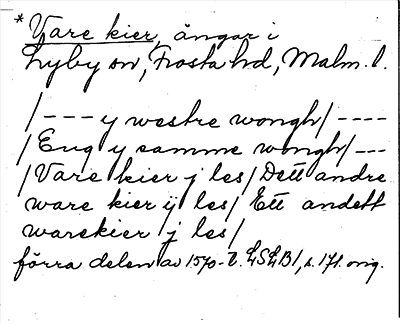 * Vare kier, ängar i
Lyby sn, Frosta hd, Malm. l.
/--- y westre wongh/ ----
/Eng y samme wongh/---
/Vare kier j les/ Dett andre
ware kier ij les/ Ett andett
warekier j les/
förra delen av 1570-t. LSLB1, s. 171. orig.